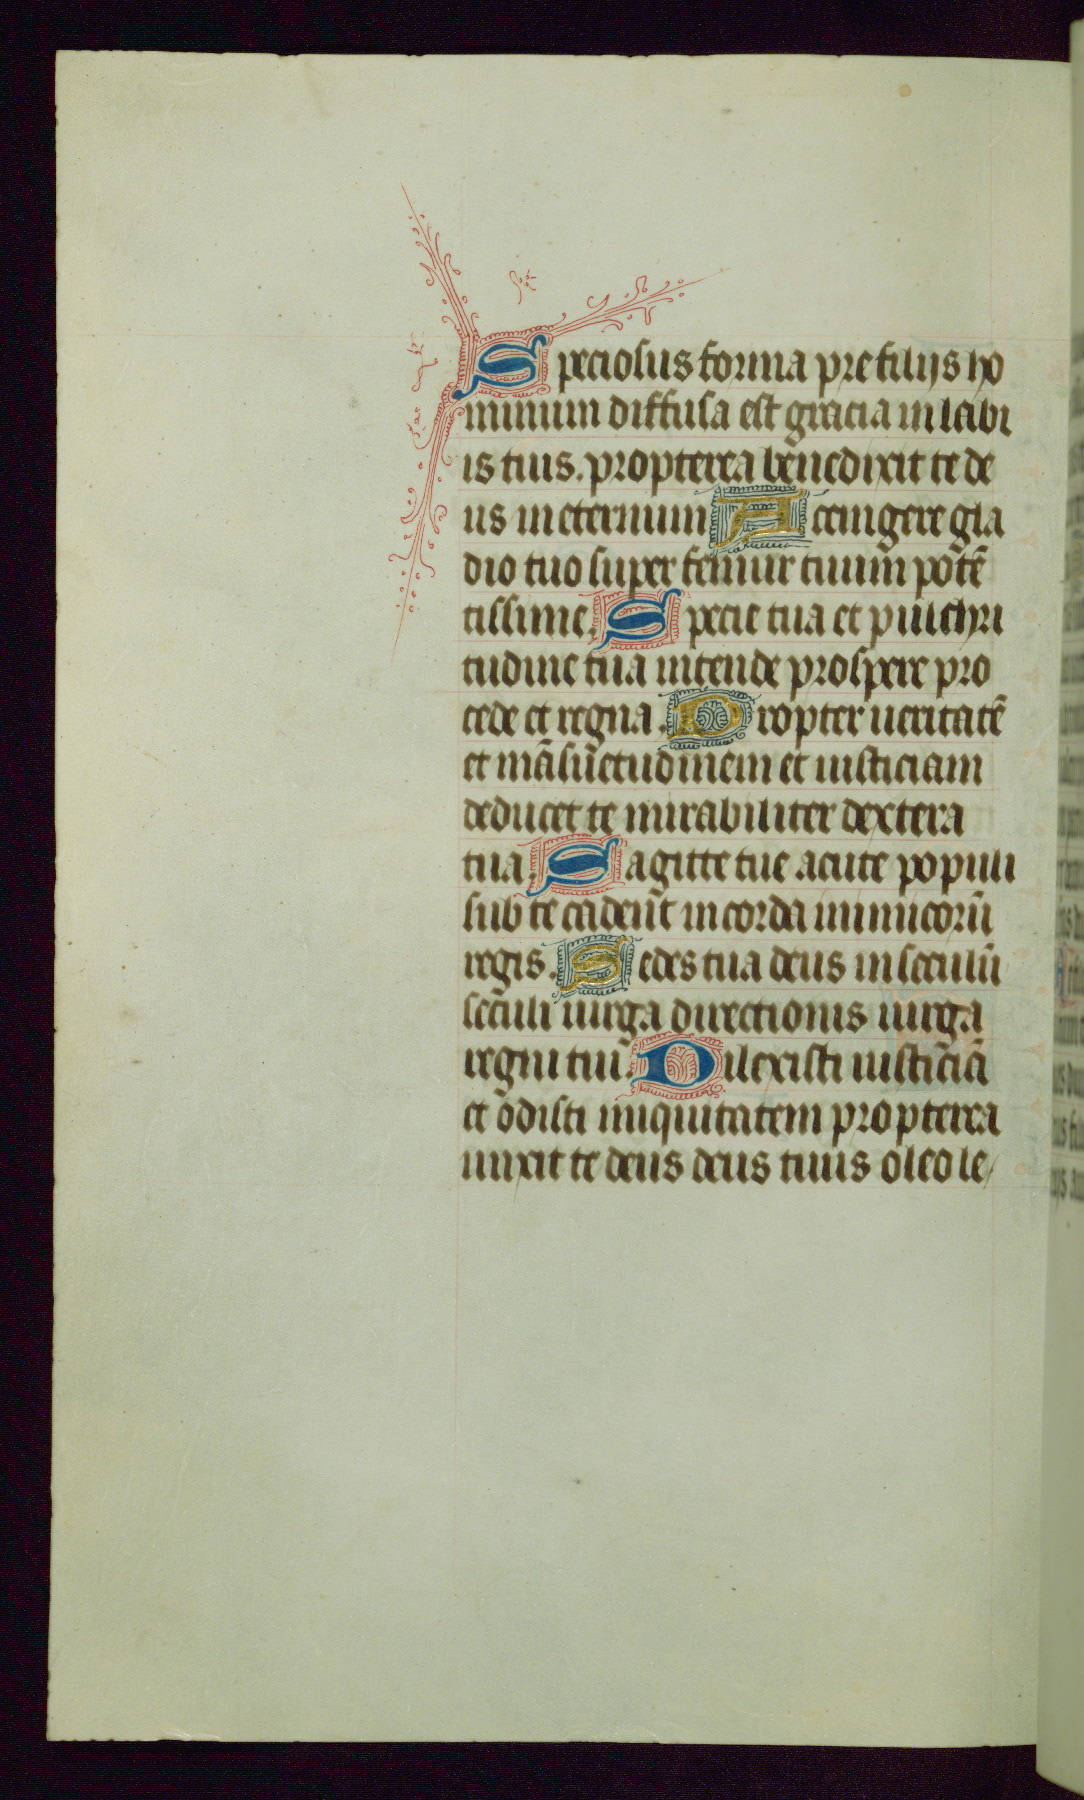 Speciosus forma pre filijs ho
minum diffusa est gracia in labi
is tuis. propterea benedixit te de
us in eternum Accingere gla
dio tuo super femur tuum potē
tissime. Specie tua et pulchri
tudine tua intende prospere pro
cede et regna. Propter ueritatē
et māsuetudinem et iusticiam
deducet te mirabiliter dextera
tua. Sagitte tue acute populi
sub te cadent in corda inimicorū
regis. Sedes tua deus in seculū
seculi uirga directionis uirga
regni tui. Dilexisti iusticiā
et odisti iniquitatem propterea
unxit te deus deus tuus oleo le